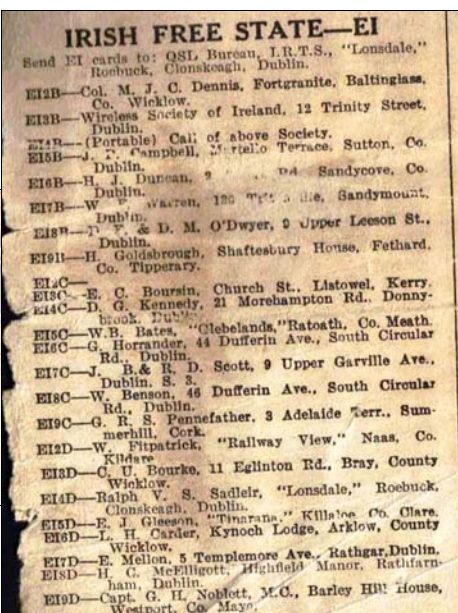 IRISH FREE STATE—EI
Send EI cards to: QSL Bureau, I.R.T.S., "Lonsdale,"
Roebuck, Clonskeagh, Dublin.
EI2B—Col. M. J. C. Dennis, Fortgranite, Baltinglass,
Co. Wicklow.
EI3B—Wireless Society of Ireland, 12 Trinity Street,
Dublin.
EI4B—(Portable) Call of above Society.
EI5B—J. P. Campbell, Martello Terrace, Sutton, Co.
Dublin.
EI6B—H. J. Duncan, Rd., Sandycove, Co.
Dublin.
EI7B—W. Warren, Sandymount,
Dublin.
EI8B— & D. M. O'Dwyer, 9 Upper Leeson St.,
Dublin.
EI9B—H. Goldsbrough, Shaftesbury House, Fethard,
Co. Tipperary.
EI2C—
EI3C—E. C. Boursin, Church St., Listowel, Kerry.
EI4C—D. G. Kennedy, 21 Morehampton Rd., Donny-
brook, Dublin.
EI5C—W.B. Bates, "Glebelands,"Ratoath, Co. Meath.
EI6C—G. Horrander, 44 Dufferin Ave., South Circular
Rd., Dublin.
EI7C—J. B.& R. D. Scott, 9 Upper Garville Ave.,
Dublin, S. 3.
EI8C—W. Benson, 46 Dufferin Ave., South Circular
Rd., Dublin.
EI9C—G. R. S. Pennefather, 3 Adelaide Terr., Sum-
merhill, Cork.
EI2D—W. Fitzpatrick, "Railway View," Naas, Co.
Kildare.
EI3D—C. U. Bourke, 11 Eglinton Rd., Bray, County
Wicklow.
EI4D—Ralph V. S. Sadleir, "Lonsdale," Roebuck,
Clonskeagh, Dublin.
EI5D—E. J. Gleeson, "Tinarana," Killaloe, Co. Clare.
EI6D—L. H. Carder, Kynoch Lodge, Arklow, County
Wicklow.
EI7D—E. Mellon, 5 Templemore Ave., Rathgar,Dublin.
EI8D—H. C. McElligott, Highfield Manor, Rathfarn-
ham, Dublin.
EI9D—Capt. G. H. Noblett, M.C., Barley Hill House,
Westport, Co. Mayo.